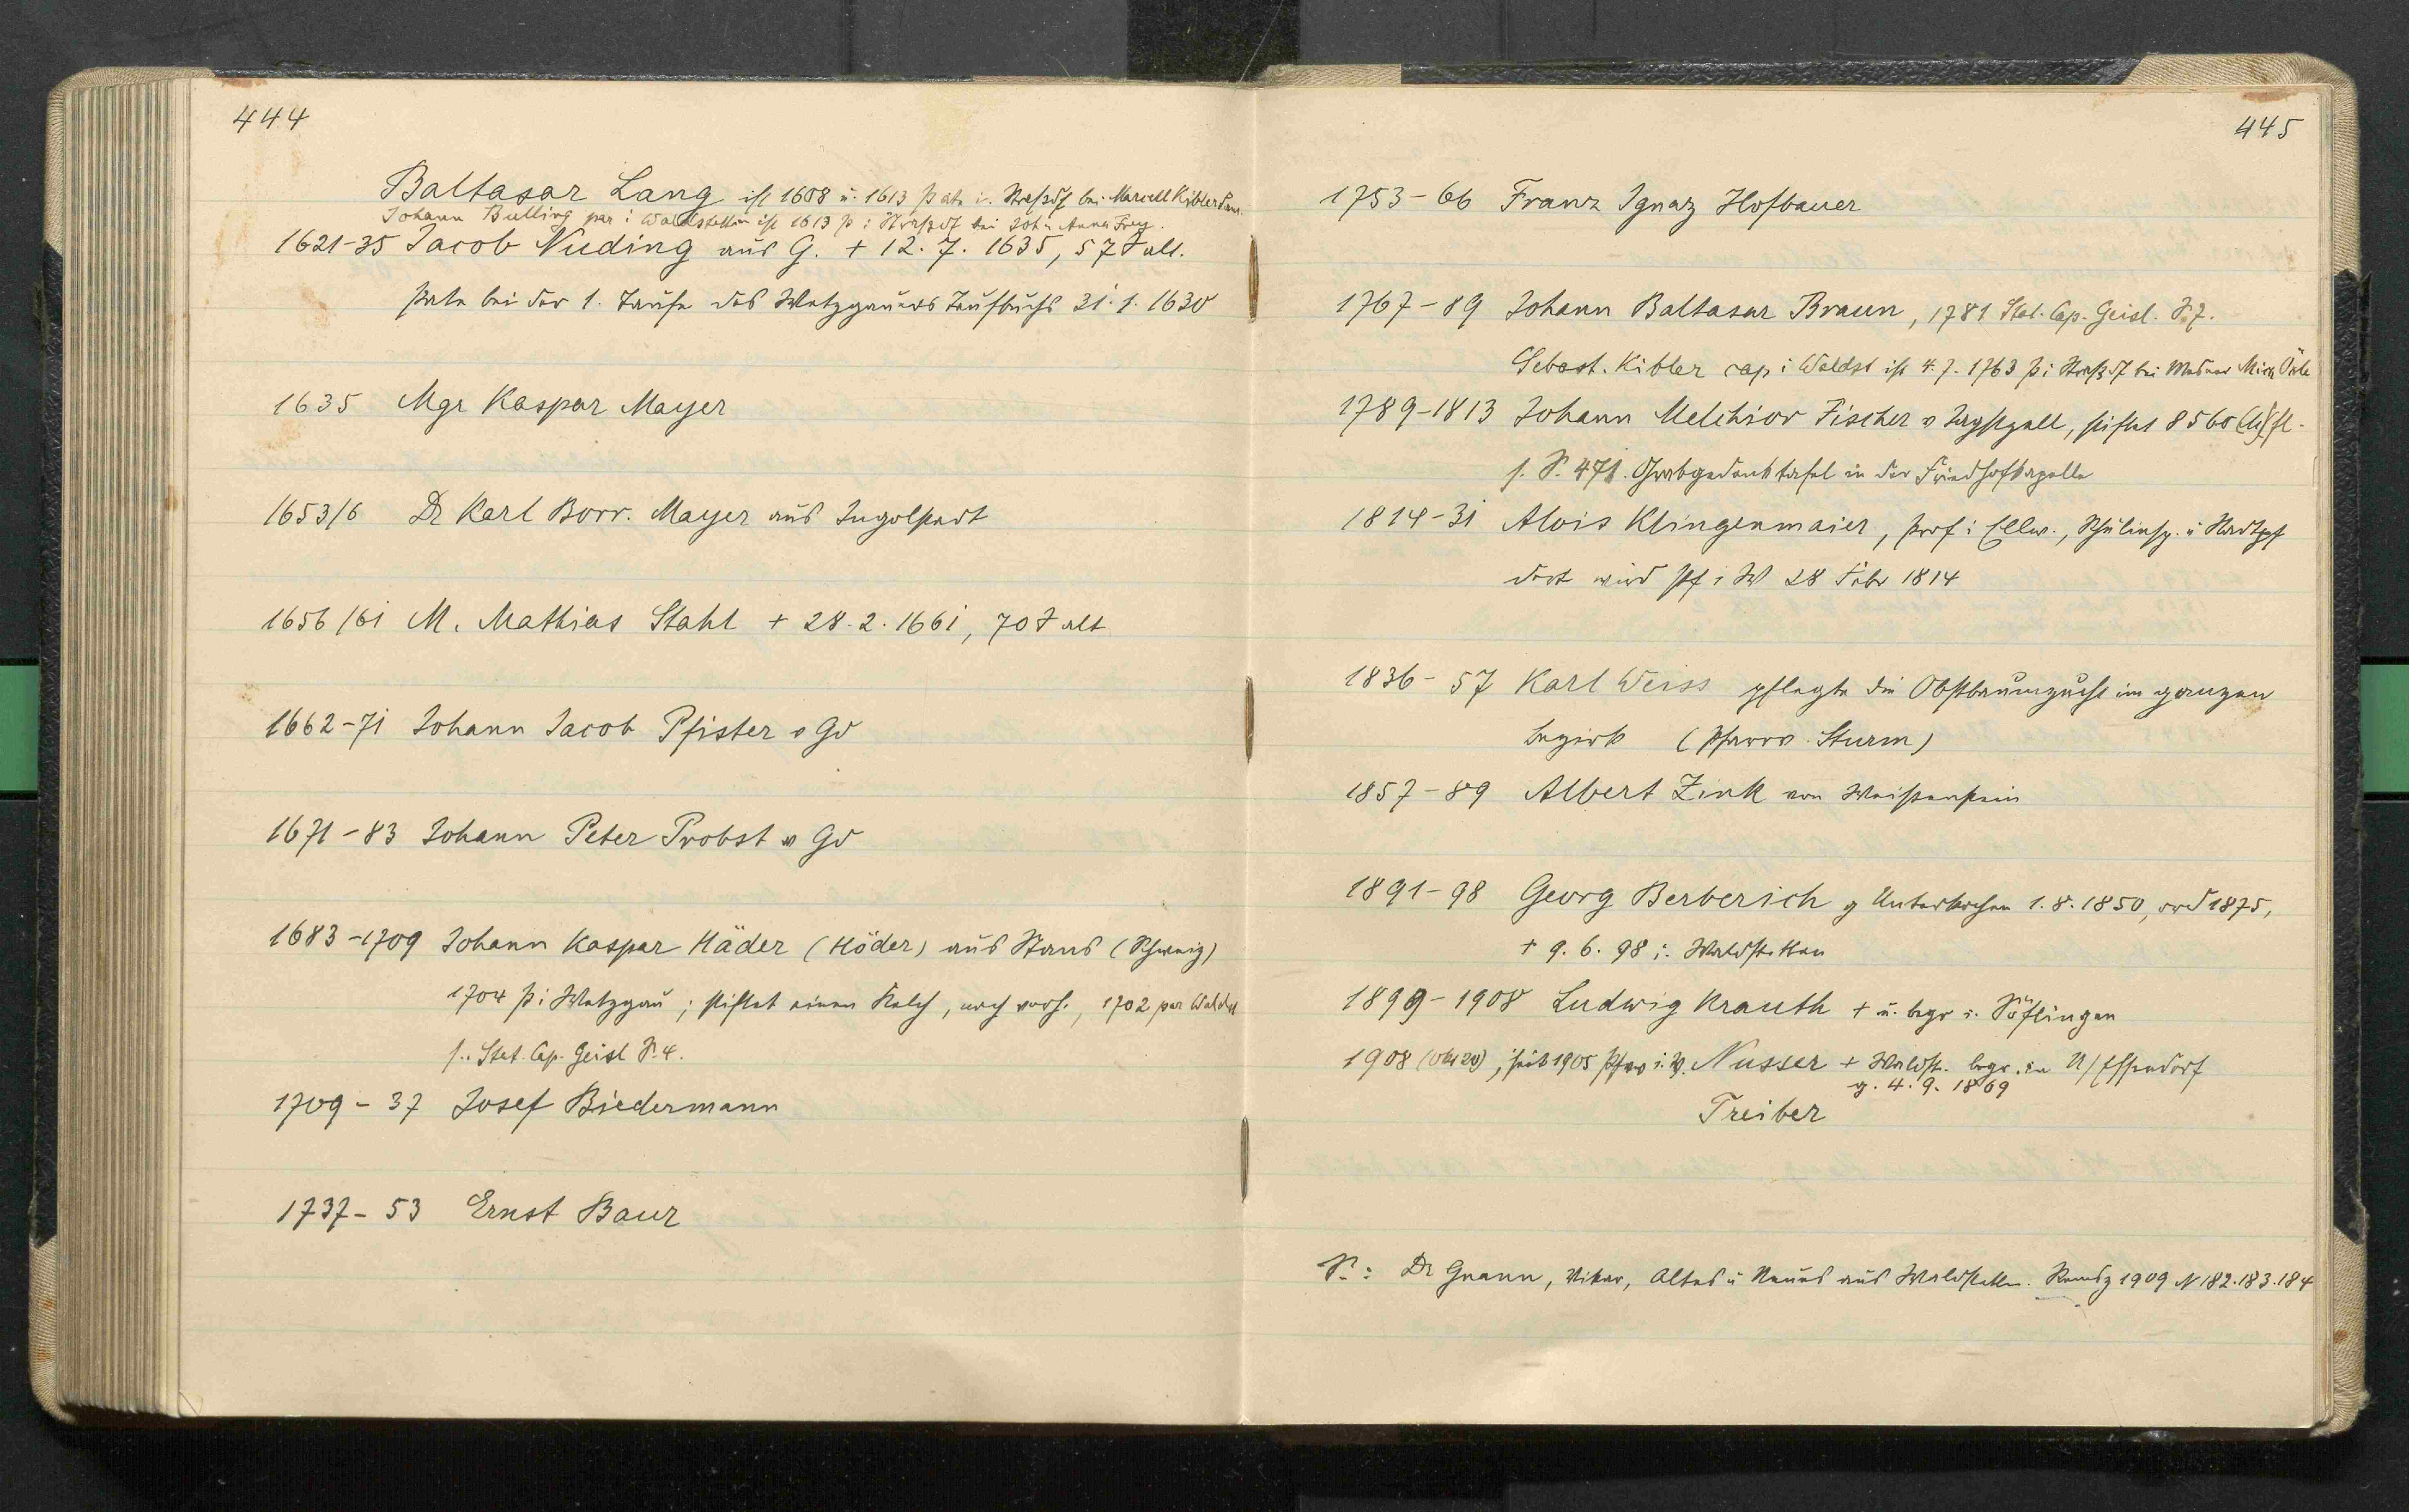 444
Baltasar Lang ist 1608 u. 1613 Pate i. Straßdf bei Marcell Kibler
Johann Bulling par i Waldstetten ist 1613 p i Straßdf bei Joh u Anna Frey.
1621-35 Jacob Nuding aus G. + 12. 7. 1635, 57 J alt.
Pate bei der 1. Taufe des Wetzgauer Taufbuchs 31. 1. 1630
1635 Mgr Kaspar Mayer
1653/6 Dr Karl Borr. Mayer aus Ingolstadt
1656/61 M. Mathias Stahl + 28. 2. 1661, 70 J alt
1662-71 Johann Jacob Pfister v Gd
1671-83 Johann Peter Probst v Gd
1683-1709 Johann Kaspar Häder (Höder) aus Stans (Schweiz)
1704 P i Wetzgau; stiftet einen Kelch, noch vorh., 1702 par Waldst
s. Stat. Cap. Geisl S. 4.
1709-37 Josef Biedermann
1737-53 Ernst Baur
445
1753-66 Franz Ignaz Hofbauer
1767-89 Johann Baltasar Braun, 1781 Stat. Cap. Geisl. S. 7.
Sebast. Kibler cap i Waldst ist 4. 7. 1763 p i Straßdf bei
1789-1813 Johann Melchior Fischer v Jagstzell, stiftet 8560 fl.
s. S. 471. Grabgedenktafel in der Friedhofkapelle
1814-31 Alois Klingenmaier, Prof i Ellw., Schulinsp. u Stadtpf
dort wird Pf i W 28 Febr 1814
1836-57 Karl Weiss pflegte die Obstbaumzucht im ganzen
Bezirk (Pfarrv. Sturm)
1857-89 Albert Zink von Weißenstein
1891-98 Georg Berberich g Unterkochen 1. 8. 1850, ord 1875,
+ 9. 6. 98 i. Waldstetten
1899-1908 Ludwig Krauth + u. begr i. Söflingen
1908 (Okt 20), seit 1905 Pfarrv i. W. Nusser + Waldst. begr. in U/Essendorf
g. 4. 9. 1869
Treiber
S.: Dr Gnann, Vikar, Altes u Neues aus Waldstetten. Remsz 1909 N 182. 183. 184